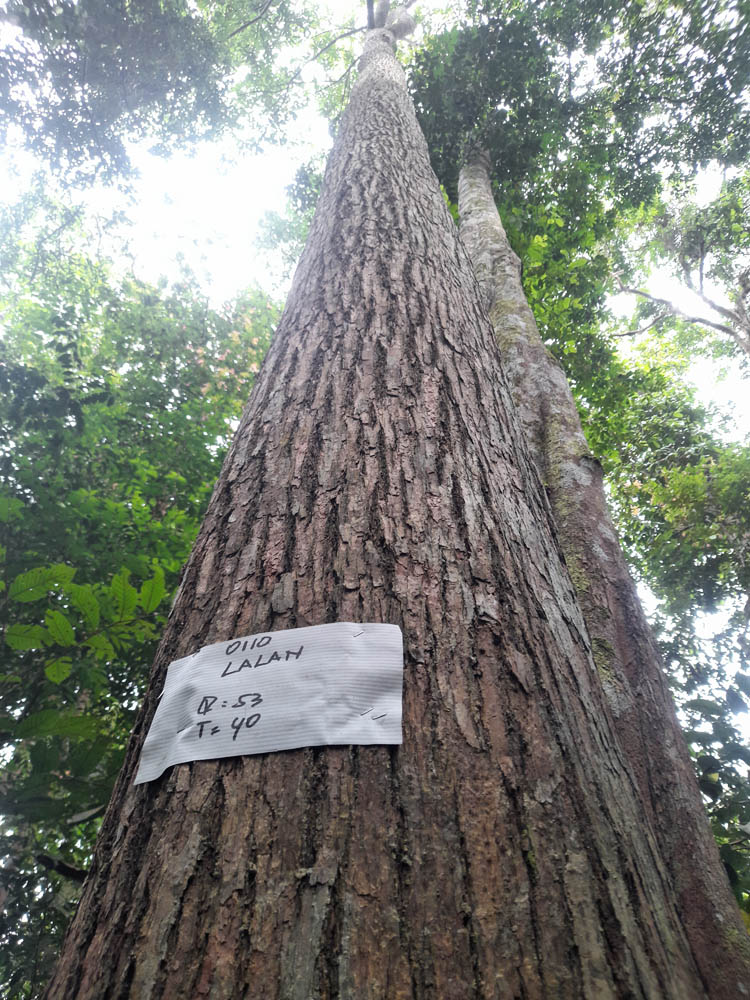 0110
LALAN
Ø: 53
T= 40